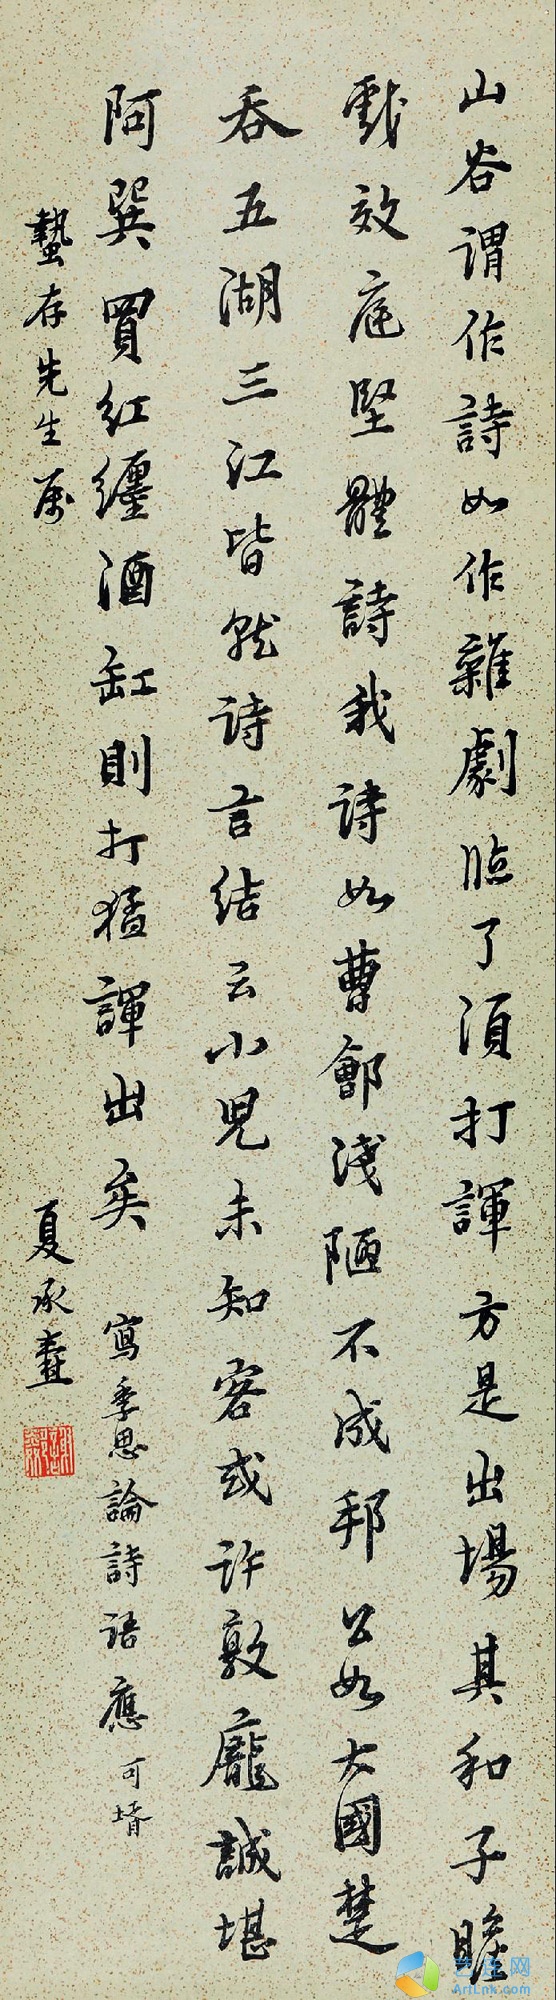 山谷謂作詩如作雜劇臨了須打諢方是出場其和子瞻
戲效庭堅體詩我詩如曹鄶淺陋不成邦公如大國楚
吞五湖三江皆就詩言結云小兒未知客或许敦龐誠堪
阿巽買紅纏酒缸則打猛諢出矣 寫季思論詩語應可壻
蟄存先生属 夏承燾
艺连网
ArtLnk.com